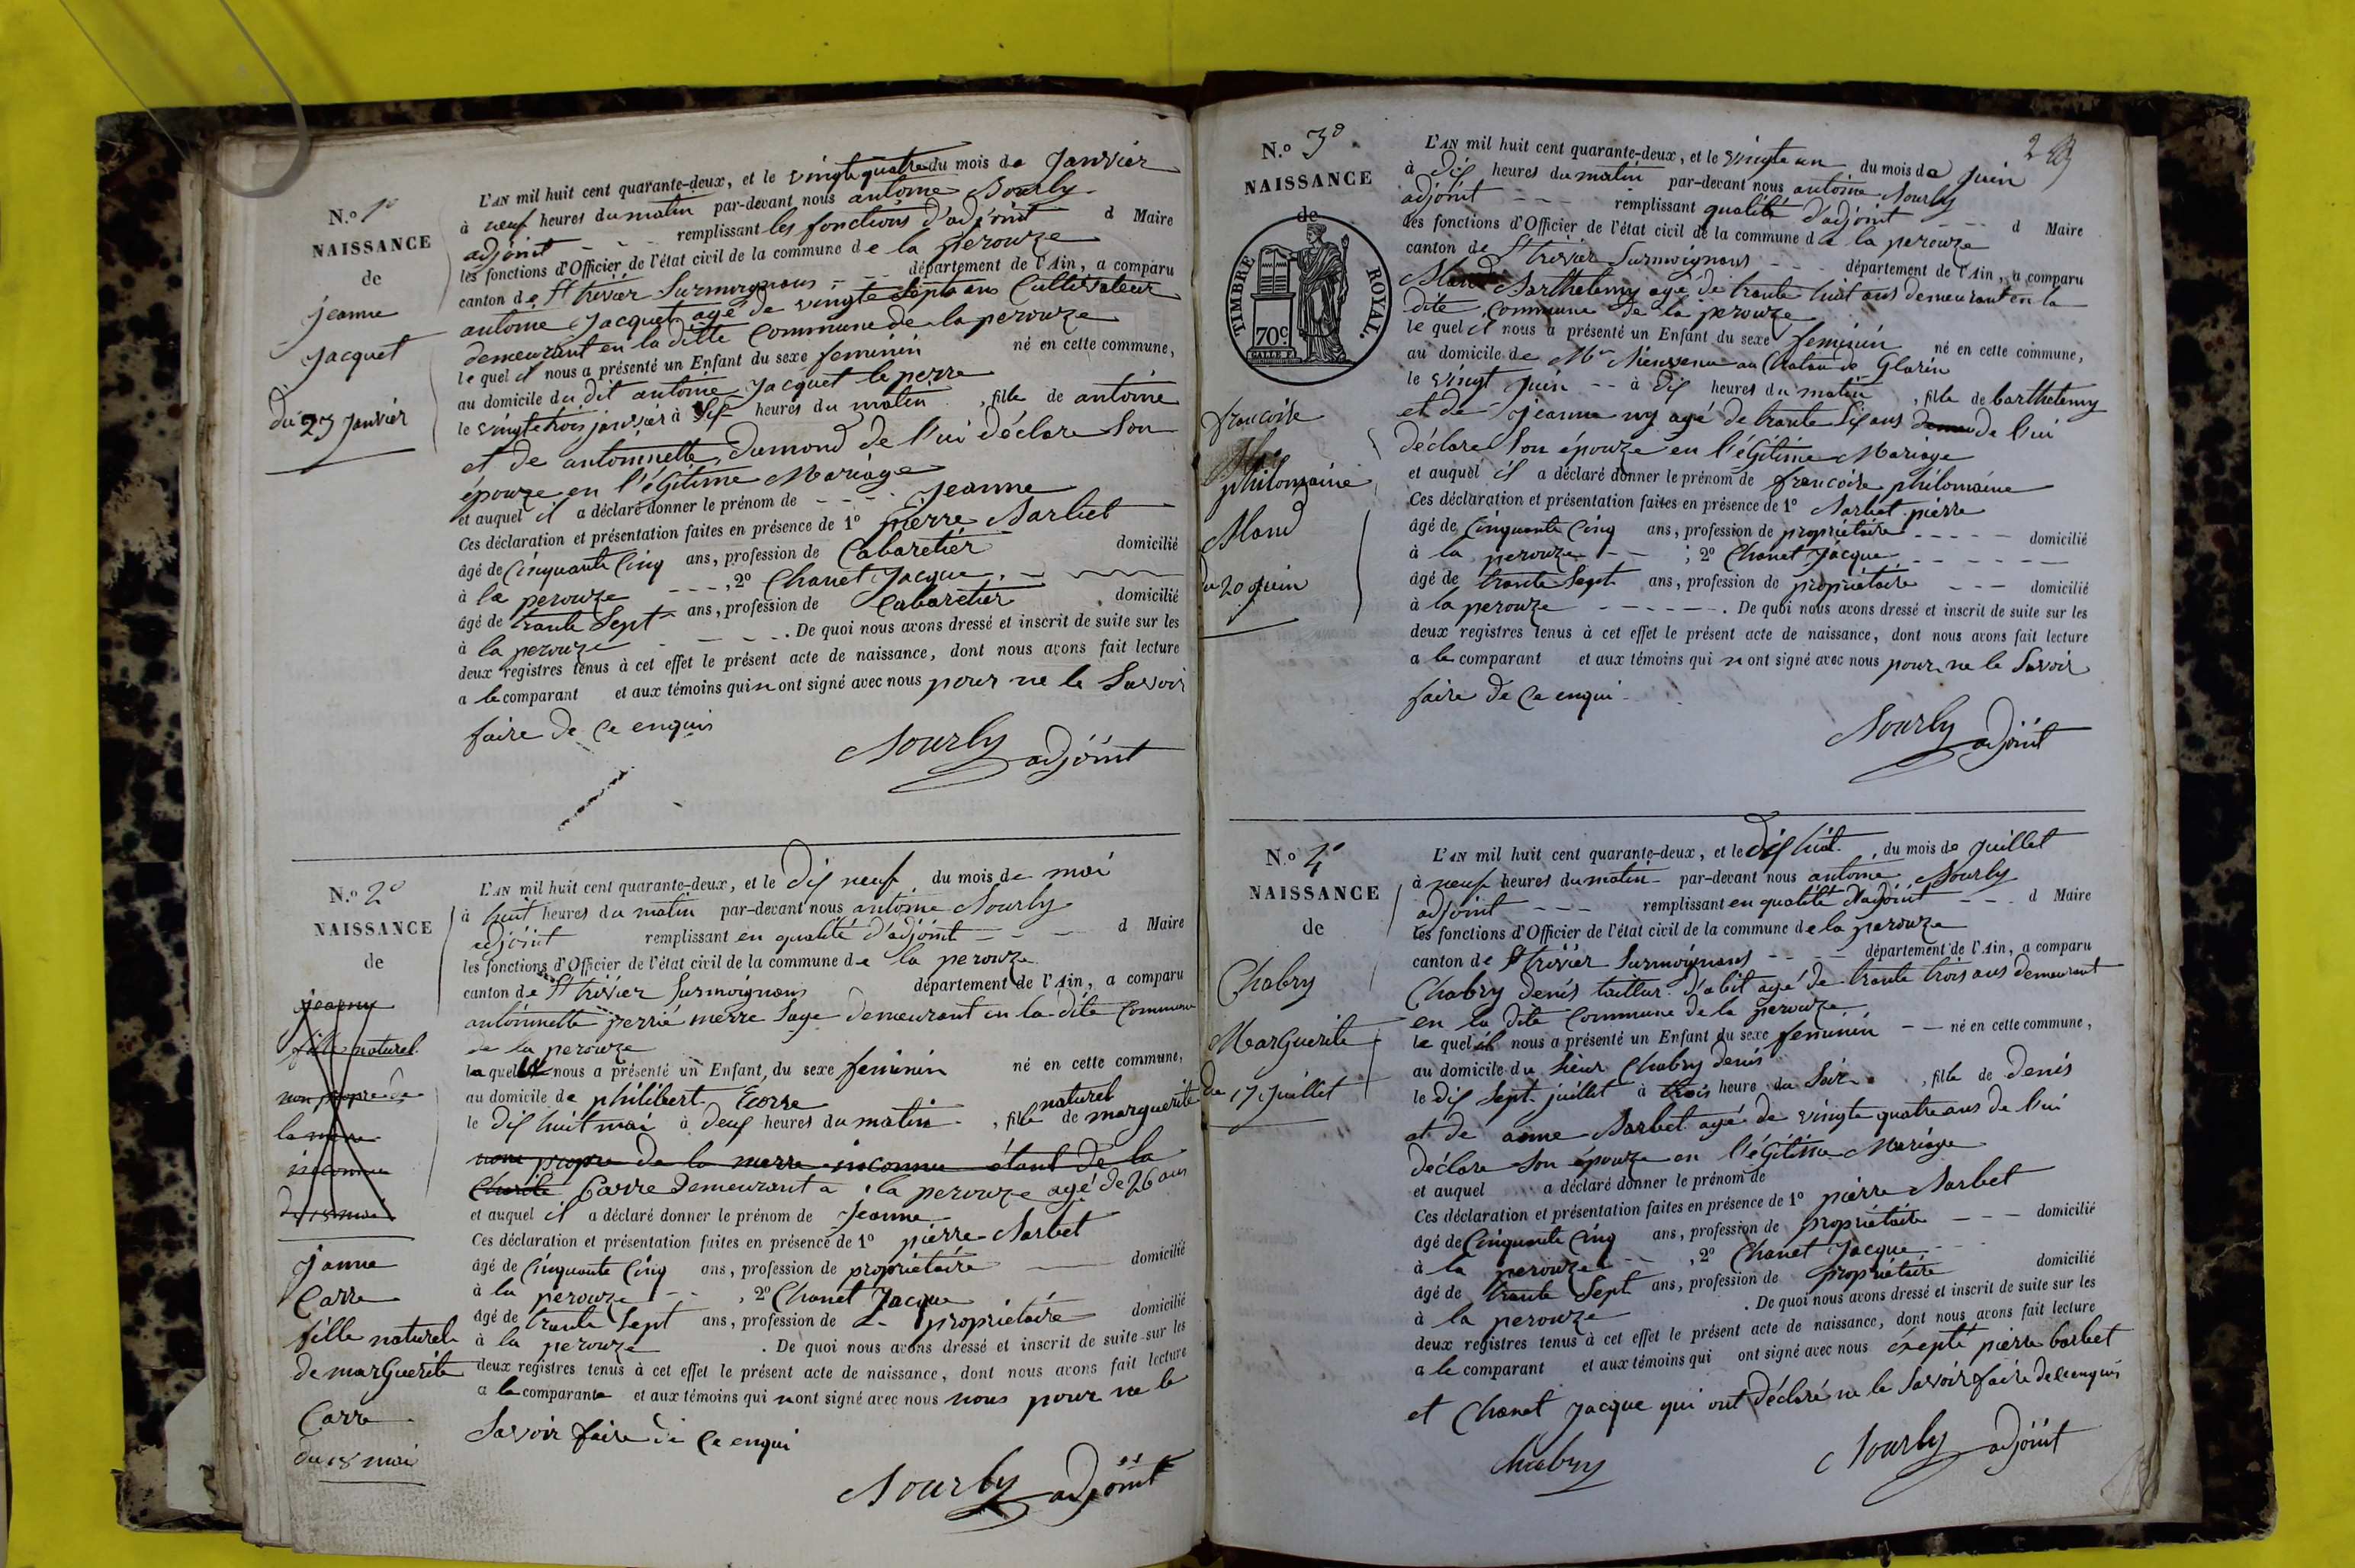 N.º 1º
NAISSANCE
de
jeanne
Jacquet
du 23 Janvier
L'AN mil huit cent quarante-deux, et le vingte quatre du mois de Janvier
à neuf heures du matin par-devant nous antoine Nourly
adjoint - - - remplissant les fonctions d'adjoint d Maire
les fonctions d'Officier de l'état civil de la commune de la perouze
canton de St trivier Surmoignans - - - département de l'Ain, a comparu
antoine Jacquet agé de vingte Sept ans Cultivateur
demeurant en la ditte Commune de la perouze
le quel il nous a présenté un Enfant du sexe feminin né en cette commune,
au domicile du dit antoine Jacquet le perre
le vingte trois janvier à heures du matin , fille de antoine
et de antoinnette Dumond de l'ui déclare Son
épouze en l'égitime Mariage
et auquel il a déclaré donner le prénom de - - - - Jeanne
Ces déclaration et présentation faites en présence de 1º pierre Barbet
âgé de Cinquante Cinq ans, profession de Cabaretier domicilié
à la perouze - - - -, 2º Chanet Jacque. -
âgé de trante Sept ans, profession de Cabaretier domicilié
à la perouze - - - -. De quoi nous avons dressé et inscrit de suite sur les
deux registres tenus à cet effet le présent acte de naissance, dont nous avons fait lecture
a le comparant et aux témoins qui n ont signé avec nous pour ne le Savoir
faire de Ce enquis
Nourly adjoint
N.º 2º
NAISSANCE
de
jeanne
fille naturel
non propre de
la mère
inconnue
du 18 mai
Janne
Carre
fille naturel
de marGuerite
Carre
du 18 mai
L'AN mil huit cent quarante-deux, et le dix neuf du mois de mai
à huit heures du matin par-devant nous antoine Nourly
adjoint remplissant en qualité d'adjoint - - - d Maire
les fonctions d'Officier de l'état civil de la commune de la perouze
canton de St trivier Surmoignans département de l'Ain, a comparu
antoinnette perrié merre Sage demeurant en la dite Commune
de la perouze
la quel nous a présenté un Enfant, du sexe feminin né en cette commune,
au domicile de philibert Ecorse
le dix huit mai à deux heures du matin , fille naturel de marguerite
nom propre de la merre inconnue étant de la
Charité Carre demeurant a la perouze agé de 26 ans
et auquel il a déclaré donner le prénom de Jeanne
Ces déclaration et présentation faites en présence de 1º pierre Barbet
âgé de Cinquante Cinq ans, profession de propriétaire domicilié
à la perouze - - , 2º Chanet Jacque
âgé de trante Sept ans, profession de propriétaire domicilié
à la perouze . De quoi nous avons dressé et inscrit de suite sur les
deux registres tenus à cet effet le présent acte de naissance, dont nous avons fait lecture
a la comparante et aux témoins qui n ont signé avec nous nous pour ne le
Savoir faire de Ce enqui
Nourly adjoint
N.º 3º
NAISSANCE
de
TIMBRE ROYAL.
70c.
francoise
philomaine
Bland
du 20 Juin
283
L'AN mil huit cent quarante-deux, et le vingte un du mois de Juin
à dix heures du matin par-devant nous antoine Nourly
adjoint - - - remplissant qualité d'adjoint - - - d Maire
les fonctions d'Officier de l'état civil de la commune de la perouze
canton de St trivier Surmoignans - - - département de l'Ain, a comparu
Bland Barthelemy agé de trante huit ans demeurant en la
dite Commune de la perouze
le quel il nous a présenté un Enfant du sexe feminin né en cette commune,
au domicile de Mr au Chatau de Glarin
le vingt Juin - - à dix heures du matin , fille de barthelemy
et de Jeanne ny agé de trante Six ans de l'ui
déclare Son épouze en l'égitime Mariage
et auquel il a déclaré donner le prénom de francoise philomaine
Ces déclaration et présentation faites en présence de 1º Barbet pierre
âgé de Cinquante Cinq ans, profession de propriétaire - - - - - domicilié
à la perouze - - ; 2º Chanet Jacque - - - - - -
âgé de trante Sept ans, profession de propriétaire - - - domicilié
à la perouze - - - - - -. De quoi nous avons dressé et inscrit de suite sur les
deux registres tenus à cet effet le présent acte de naissance, dont nous avons fait lecture
a le comparant et aux témoins qui n ont signé avec nous pour ne le Savoir
faire de Ce enqui
Nourly adjoint
N.º 4º
NAISSANCE
de
Chabry
MarGuerite
du 17 Juillet
L'AN mil huit cent quarante-deux, et le dix huit du mois de Juillet
à neuf heures du matin par-devant nous antoine Nourly
adjoint - - - remplissant en qualité d'adjoint - - - d Maire
les fonctions d'Officier de l'état civil de la commune de la perouze
canton de St trivier Surmoignans - - - - département de l'Ain, a comparu
Chabry denis taillur d'abit agé de trante trois ans demeurant
en la dite Commune de la perouze
le quel il nous a présenté un Enfant du sexe feminin - - né en cette commune,
au domicile du Sieur Chabry denis
le dix Sept juillet à trois heure du Soir , fille de denis
et de anne Barbet agé de vingte quatre ans de l'ui
déclare Son épouze en l'égitime Mariage
et auquel a déclaré donner le prénom de
Ces déclaration et présentation faites en présence de 1º pierre Barbet
âgé de Cinquante Cinq ans, profession de propriétaire - - - domicilié
à la perouze - - , 2º Chanet Jacque
âgé de trante Sept ans, profession de propriétaire domicilié
à la perouze . De quoi nous avons dressé et inscrit de suite sur les
deux registres tenus à cet effet le présent acte de naissance, dont nous avons fait lecture
a le comparant et aux témoins qui ont signé avec nous éxepté pierre barbet
et Chanet Jacque qui ont déclaré ne le Savoir faire de Ce enquis
Chabry
Nourly adjoint